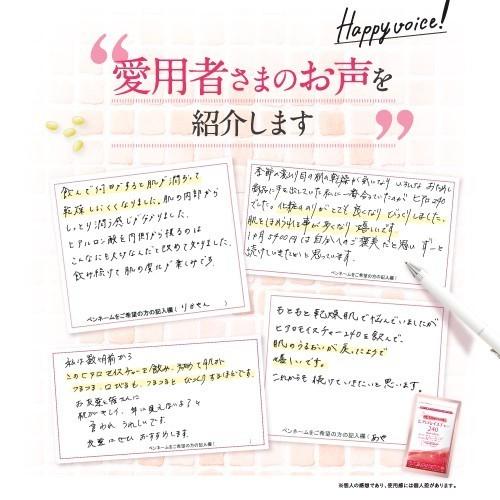 Happy voice!
愛用者さまのお声を
紹介します
飲んで何日かすると肌が潤おって
乾燥しにくくなりました。肌の内部から
しっとり潤う感じがありました。
ヒアルロン酸を内側から摂るのは
こんなにも大切なんだと改めて知りました。
飲み続けて肌の変化が楽しみです。
ペンネームをご希望の方の記入欄(
季節の変わり目の肌の乾燥が気になり いろんな お試し
商品に手を出していた私に一番合っていたのが ヒアロ240
でした。化粧のりがとても良くなり びっくりしました。
肌をほめられる事が多くなり 嬉しいです。
1ヶ月5400円は自分への ご褒美だと思い ずーっと
続けていきたいと思っています。
ペンネームをご希望の方の記入欄(
もともと乾燥肌で悩んでいましたが
ヒアロモイスチャー240を飲んで、
肌のうるおいが戻ったようで
嬉しいです。
これからも続けていきたいと思います。
ペンネームをご希望の方の記入欄( あや
私は数年前から
このヒアロモイスチャーを飲み
お友達と皆さんに
言われ うれしいです。
ぜひおすすめします。
ペンネームをご希望の方の記入欄(
ヒアロモイスチャー
240
※個人の感想であり、使用感には個人差があります。